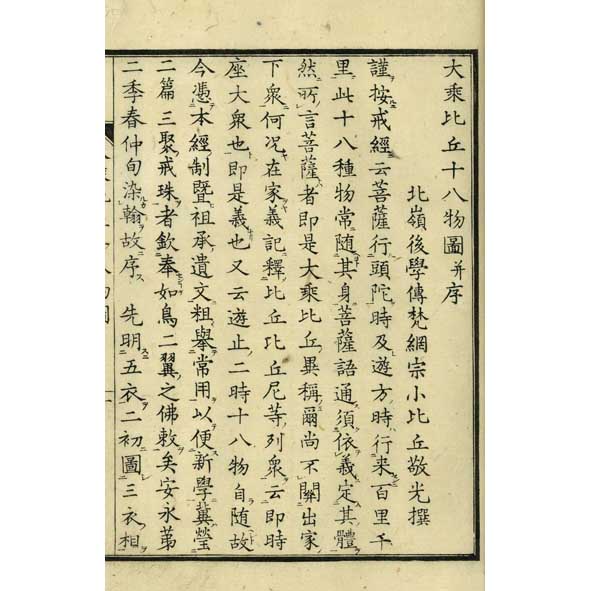 大乘比丘十八物圖并序
北嶺後學傳梵網宗小比丘敬光撰
謹按戒經云菩薩行頭陀時及遊方時行来百里千
里此十八種物常隨其身菩薩語通須依義定其體
然所言菩薩者即是大乘比丘異稱爾尚不關出家
下衆何况在家義記釋比丘比丘尼等列衆云即時
座大衆也即是義也又云遊止二時十八物自隨故
今憑本經制暨祖承遺文粗舉常用以便新學冀瑩
二篇三聚戒珠者欽奉如鳥二翼之佛敕矣安永第
二季春仲旬染翰故序 先明五衣二初圖三衣相